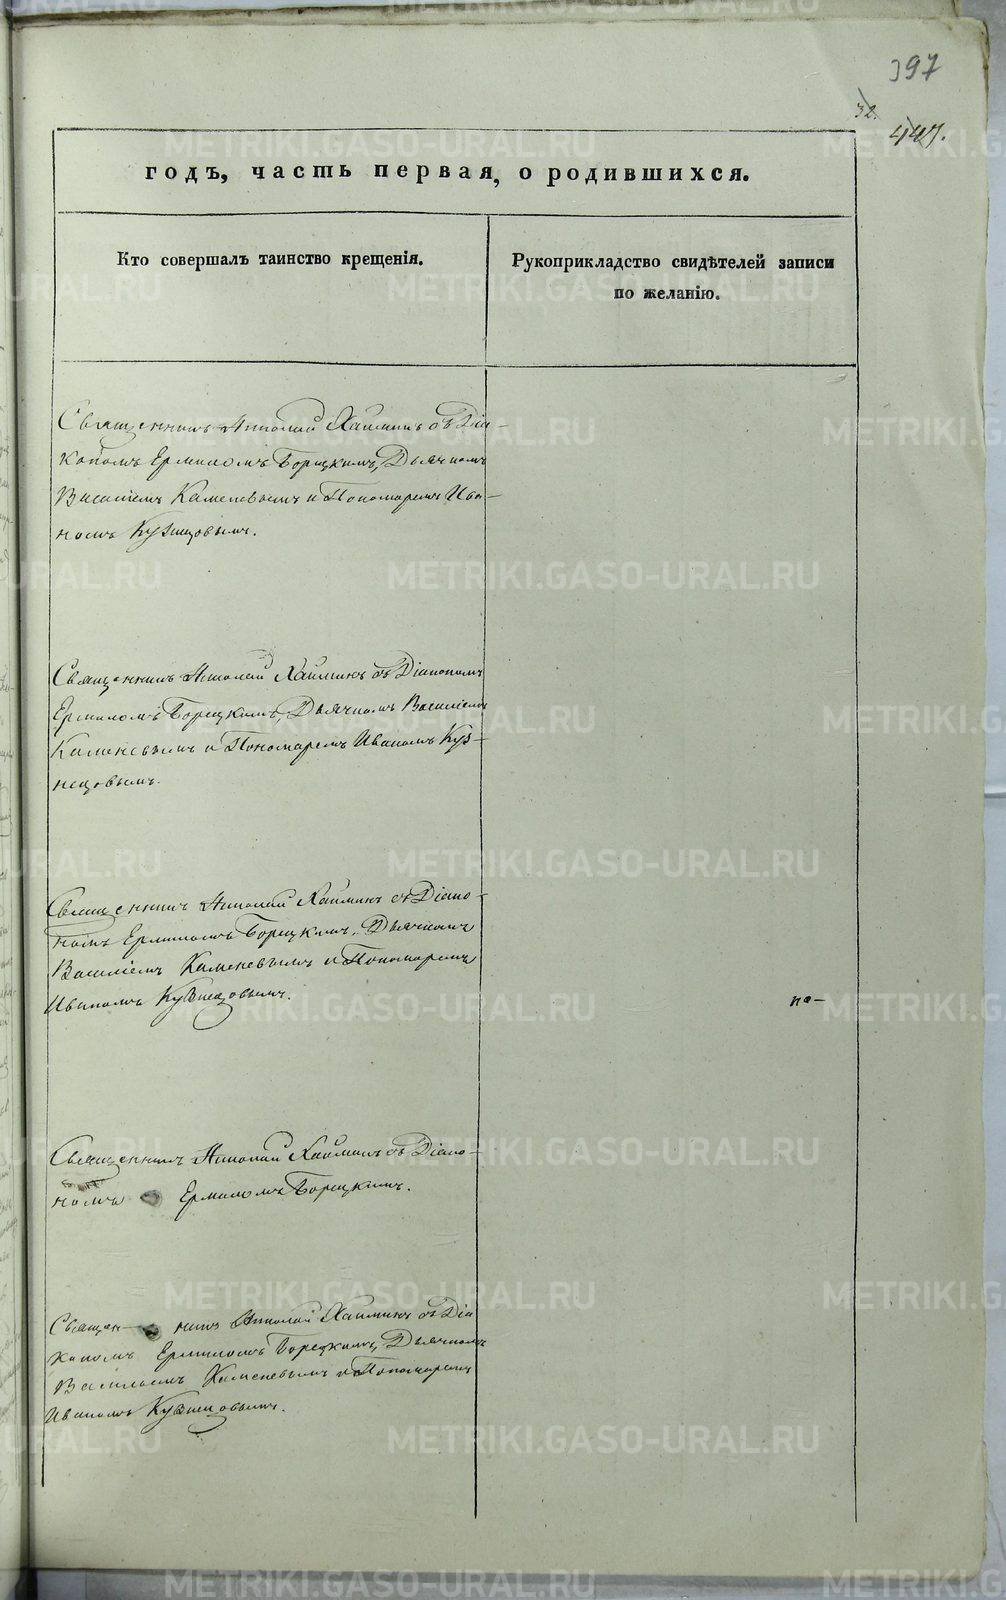 397
32.
447.
годъ, часть первая, о родившихся.
Кто совершалъ таинство крещенія.
Рукоприкладство свидѣтелей записи
по желанію.
Священникъ Николай Хаймикъ съ Діа-
кономъ Ермиломъ Борецкимъ, Дьячкомъ
Василіемъ Каменевымъ и Пономаремъ Ива-
номъ Кузнецовымъ.
Священникъ Николай Хайминъ съ Діакономъ
Ермиломъ Борецкимъ, Дьячкомъ Василіемъ
Каменевымъ и Пономаремъ Иваномъ Куз-
нецовымъ.
Священникъ Николай Хайминъ съ Діако-
номъ Ермиломъ Борецкимъ, Дьячкомъ
Василіемъ Каменевымъ и Пономаремъ
Иваномъ Кузнецовымъ.
по-
Священникъ Николай Хайминъ съ Діако-
номъ Ермиломъ Борецкимъ.
Священникъ Николай Хайминъ съ Діа
кономъ Ермиломъ Борецкимъ, Дьячкомъ
Васильемъ Каменевымъ и Пономаремъ
Иваномъ Кузнецовымъ.
METRIKI.GASO-URAL.RU